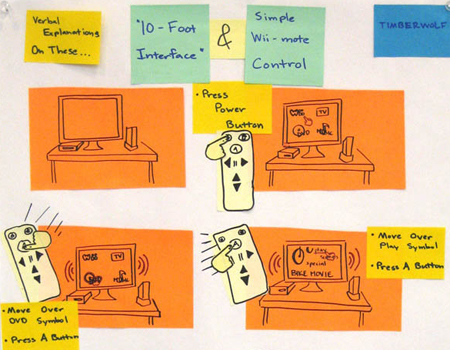 Verbal
Explanations
On These...
"10-Foot
Interface"
&
Simple
Wii-mote
Control
TIMBERWOLF
• Press
Power
Button
A
Wii TV
DVD
A
Wii TV
DVD
• Move Over
DVD Symbol
• Press A Button
A
play
special
BIKE MOVIE
• Move Over
Play Symbol
• Press A Button